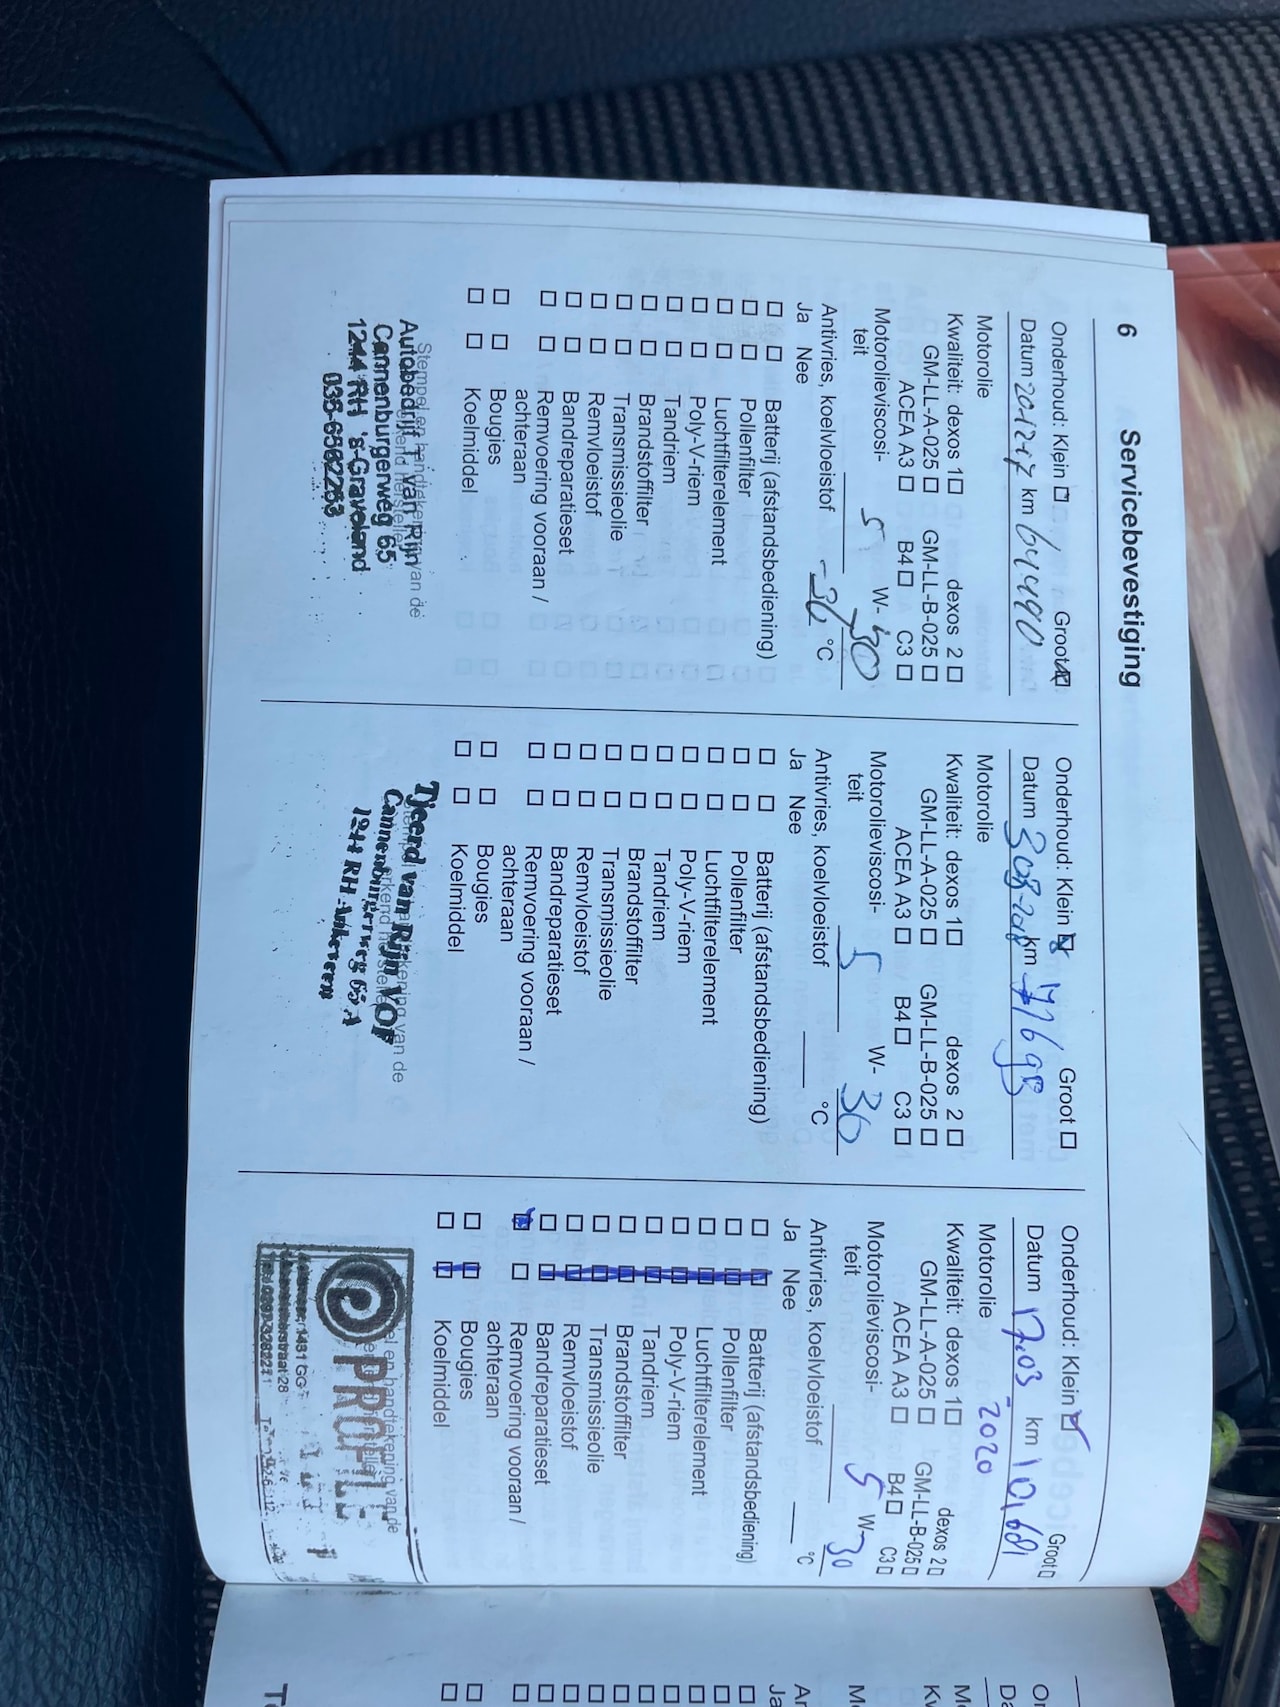 6 Servicebevestiging
Onderhoud: Klein Groot
Datum km 64490
Motorolie
Kwaliteit: dexos 1 dexos 2
GM-LL-A-025 GM-LL-B-025
ACEA A3 B4 C3
Motorolieviscosi-
teit 5 W-30
Antivries, koelvloeistof -36 °C
Ja Nee
Batterij (afstandsbediening)
Pollenfilter
Luchtfilterelement
Poly-V-riem
Tandriem
Brandstoffilter
Transmissieolie
Remvloeistof
Bandreparatieset
Remvoering vooraan /
achteraan
Bougies
Koelmiddel
Stempel en handtekening van de
erkend hersteller
Autobedrijf T van Rijn
Cannenburgerweg 65
1244 RH 's-Graveland
035-6562263
Onderhoud: Klein Groot
Datum km 77698
Motorolie
Kwaliteit: dexos 1 dexos 2
GM-LL-A-025 GM-LL-B-025
ACEA A3 B4 C3
Motorolieviscosi-
teit 5 W-30
Antivries, koelvloeistof °C
Ja Nee
Batterij (afstandsbediening)
Pollenfilter
Luchtfilterelement
Poly-V-riem
Tandriem
Brandstoffilter
Transmissieolie
Remvloeistof
Bandreparatieset
Remvoering vooraan /
achteraan
Bougies
Koelmiddel
Stempel en handtekening van de
erkend hersteller
Tjeerd van Rijn VOF
Cannenburgerweg 65 A
1244 RH Ankeveen
Onderhoud: Klein Groot
Datum 17.03-2020 km 101681
Motorolie
Kwaliteit: dexos 1 dexos 2
GM-LL-A-025 GM-LL-B-025
ACEA A3 B4 C3
Motorolieviscosi-
teit 5 W-30
Antivries, koelvloeistof °C
Ja Nee
Batterij (afstandsbediening)
Pollenfilter
Luchtfilterelement
Poly-V-riem
Tandriem
Brandstoffilter
Transmissieolie
Remvloeistof
Bandreparatieset
Remvoering vooraan /
achteraan
Bougies
Koelmiddel
en handtekening van de
PROFILE
1431 GG